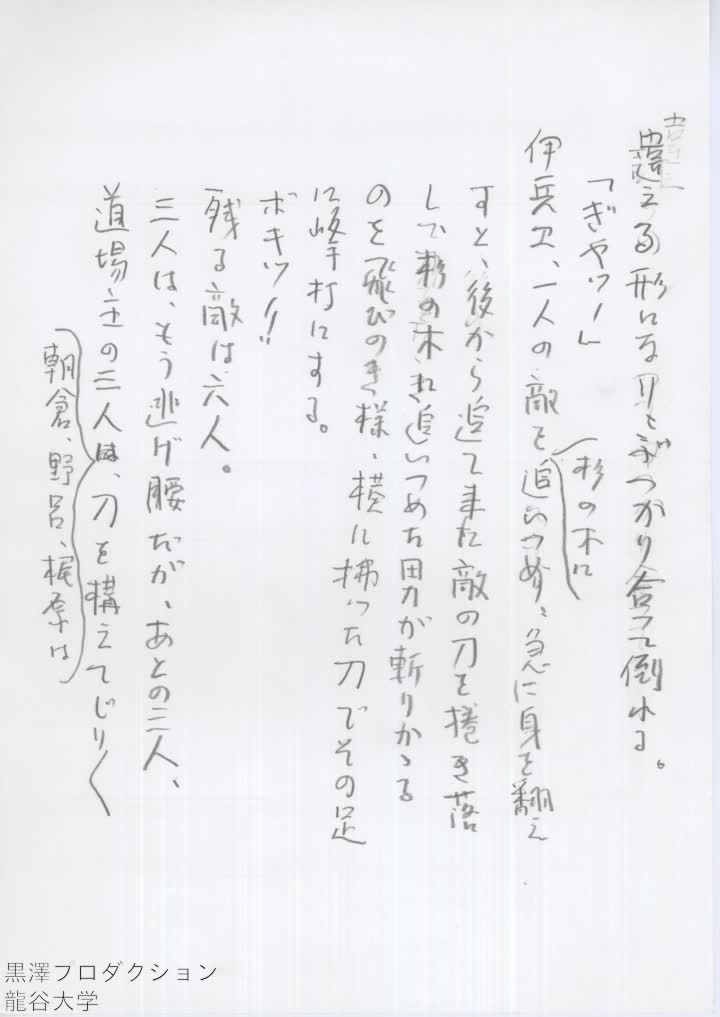 違える形になりとぶつかり合って倒れる。
「ぎやッ！」
伊兵卫、一人の敵を追いつめ、急に身を翻え
杉の木に
すと、後から追て来た敵の刀を捲き落
して、杉の木き追いつめた男が斬りかゝる
のを飛びのき様、横に拂った刀でその足
に峰打にする。
ボキツ！！
残る敵は六人。
三人は、もう逃げ腰だが、あとの三人、
道場主の三人は、刀を構えてじり〱
朝倉、野呂、梶原は
黒澤フロダクション
龍谷大学